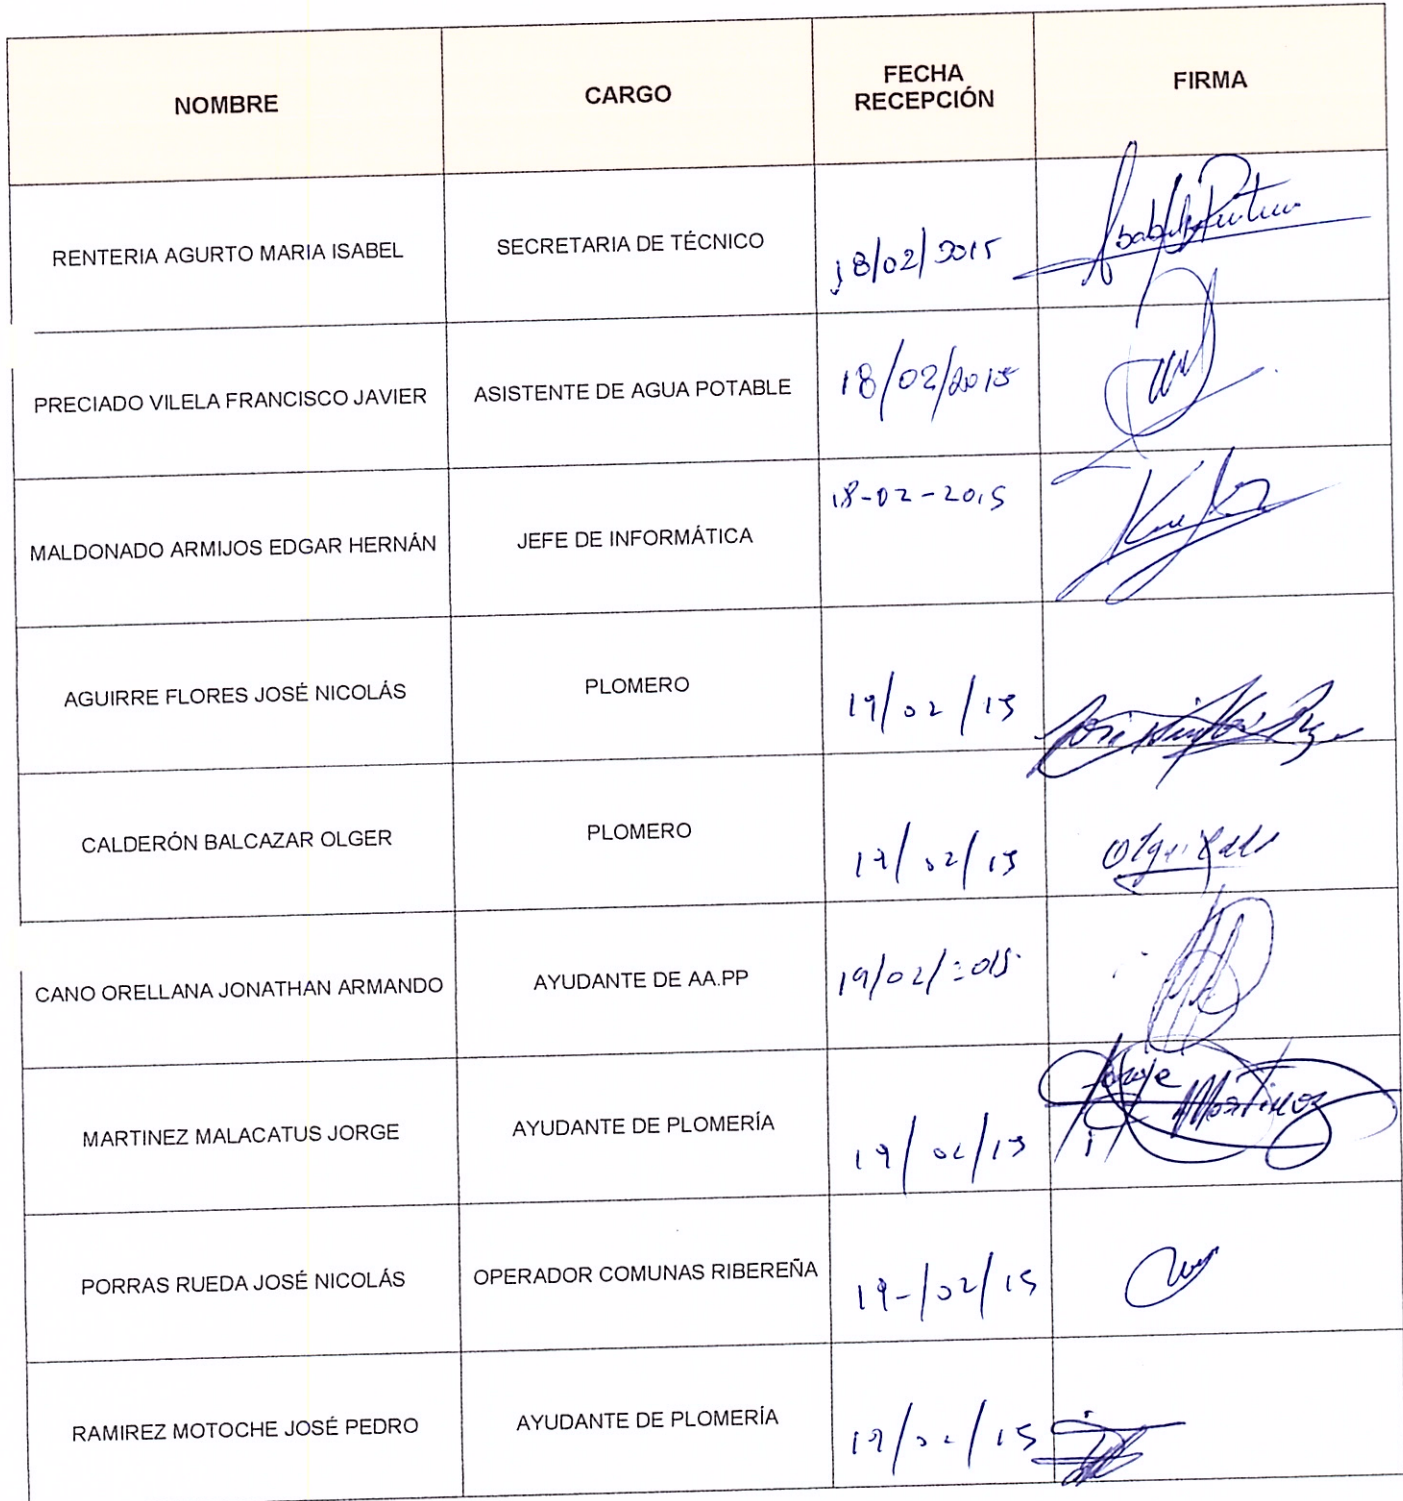 NOMBRE CARGO FECHA RECEPCIÓN FIRMA
RENTERIA AGURTO MARIA ISABEL SECRETARIA DE TÉCNICO 18/02/2015
PRECIADO VILELA FRANCISCO JAVIER ASISTENTE DE AGUA POTABLE 18/02/2015
MALDONADO ARMIJOS EDGAR HERNÁN JEFE DE INFORMÁTICA 18-02-2015
AGUIRRE FLORES JOSÉ NICOLÁS PLOMERO 19/02/15
CALDERÓN BALCAZAR OLGER PLOMERO 19/02/15
CANO ORELLANA JONATHAN ARMANDO AYUDANTE DE AA.PP 19/02/2015
MARTINEZ MALACATUS JORGE AYUDANTE DE PLOMERÍA 19/02/15 Jorge Martinez
PORRAS RUEDA JOSÉ NICOLÁS OPERADOR COMUNAS RIBEREÑA 19-/02/15
RAMIREZ MOTOCHE JOSÉ PEDRO AYUDANTE DE PLOMERÍA 19/02/15